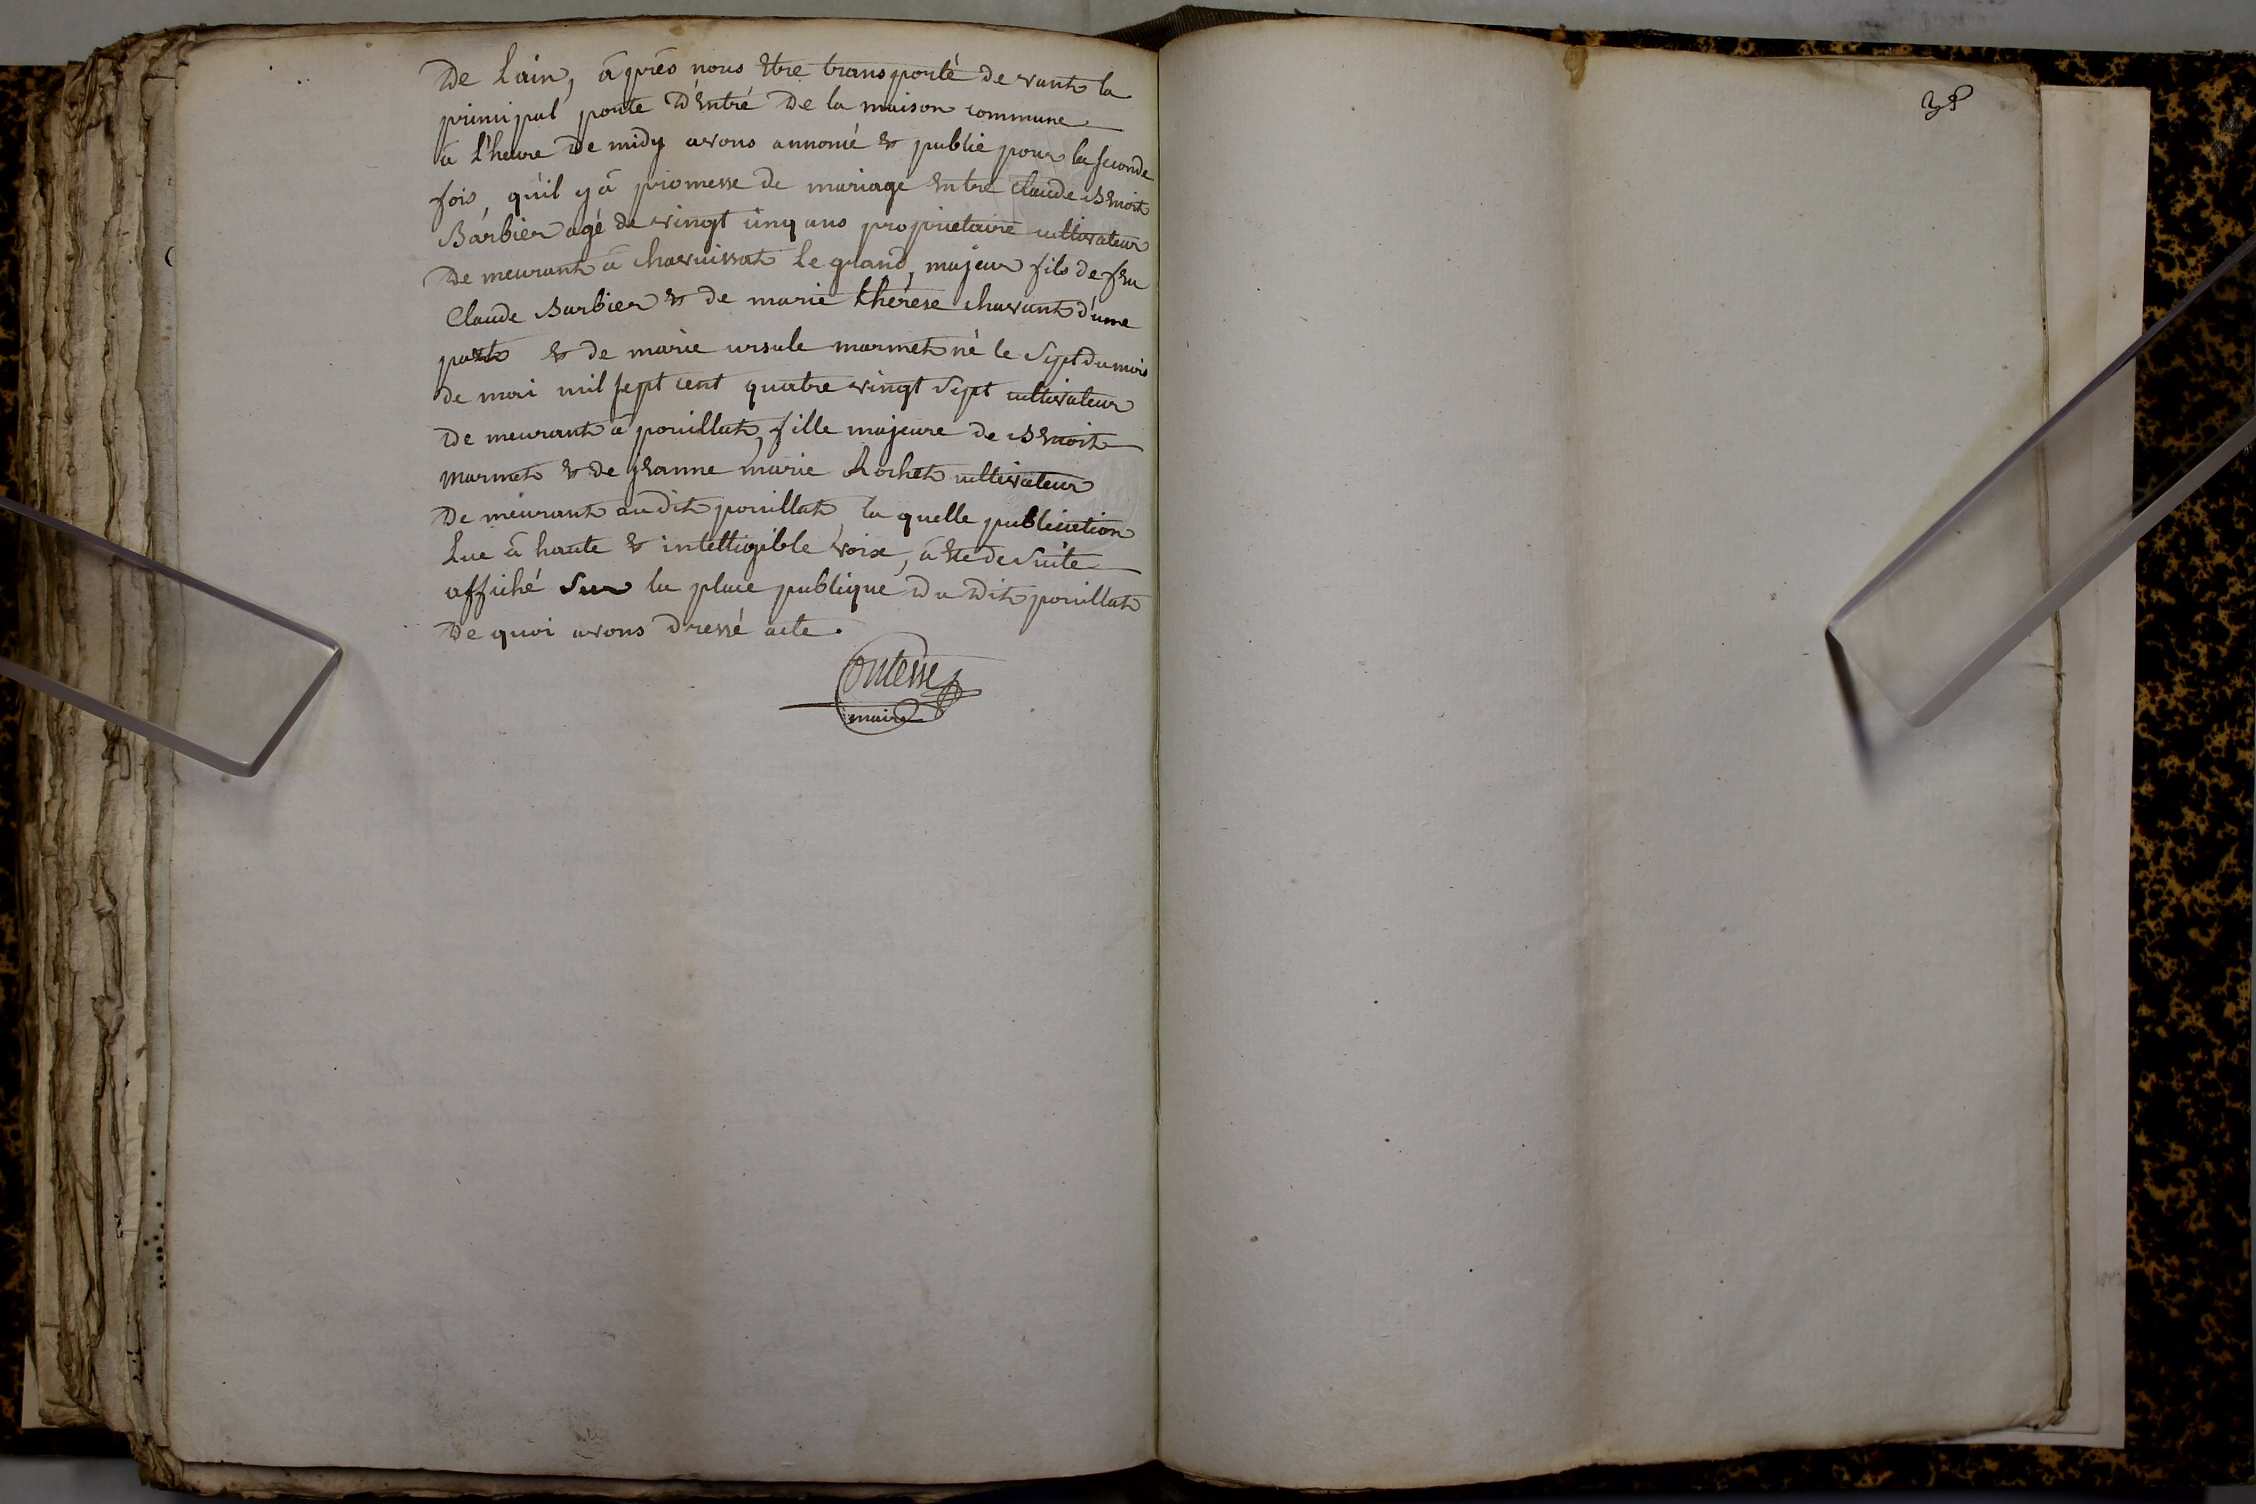 De Lain, àprés nous etre transporté de vant la
principal porte D'entré De la maison commune
à l'heure De midy avons annoncé & publié pour la seconde
fois, qu'il y à promesse de mariage entre Claude Benoit
Barbier agé de vingt cinq ans proprietaire cultivateur
De meurant à chavuissiat le grand, majeur fils de feu
Claude Barbier & de marie thérése chavant d'une
part & de marie ursule marmet né le Sept du mois
de mai mil sept cent quatre vingt Sept cultivateur
De meurant à pouillat, fille majeure de Benoit
marmet & de jeanne marie Rochet cultivateur
De meurant audit pouillat la quelle publication
Lue à haute & intelligible voix, à ete de Suite
affiché Sur la place publique Du Dit pouillat
De quoi avons Dressé acte.
Contesse
maire